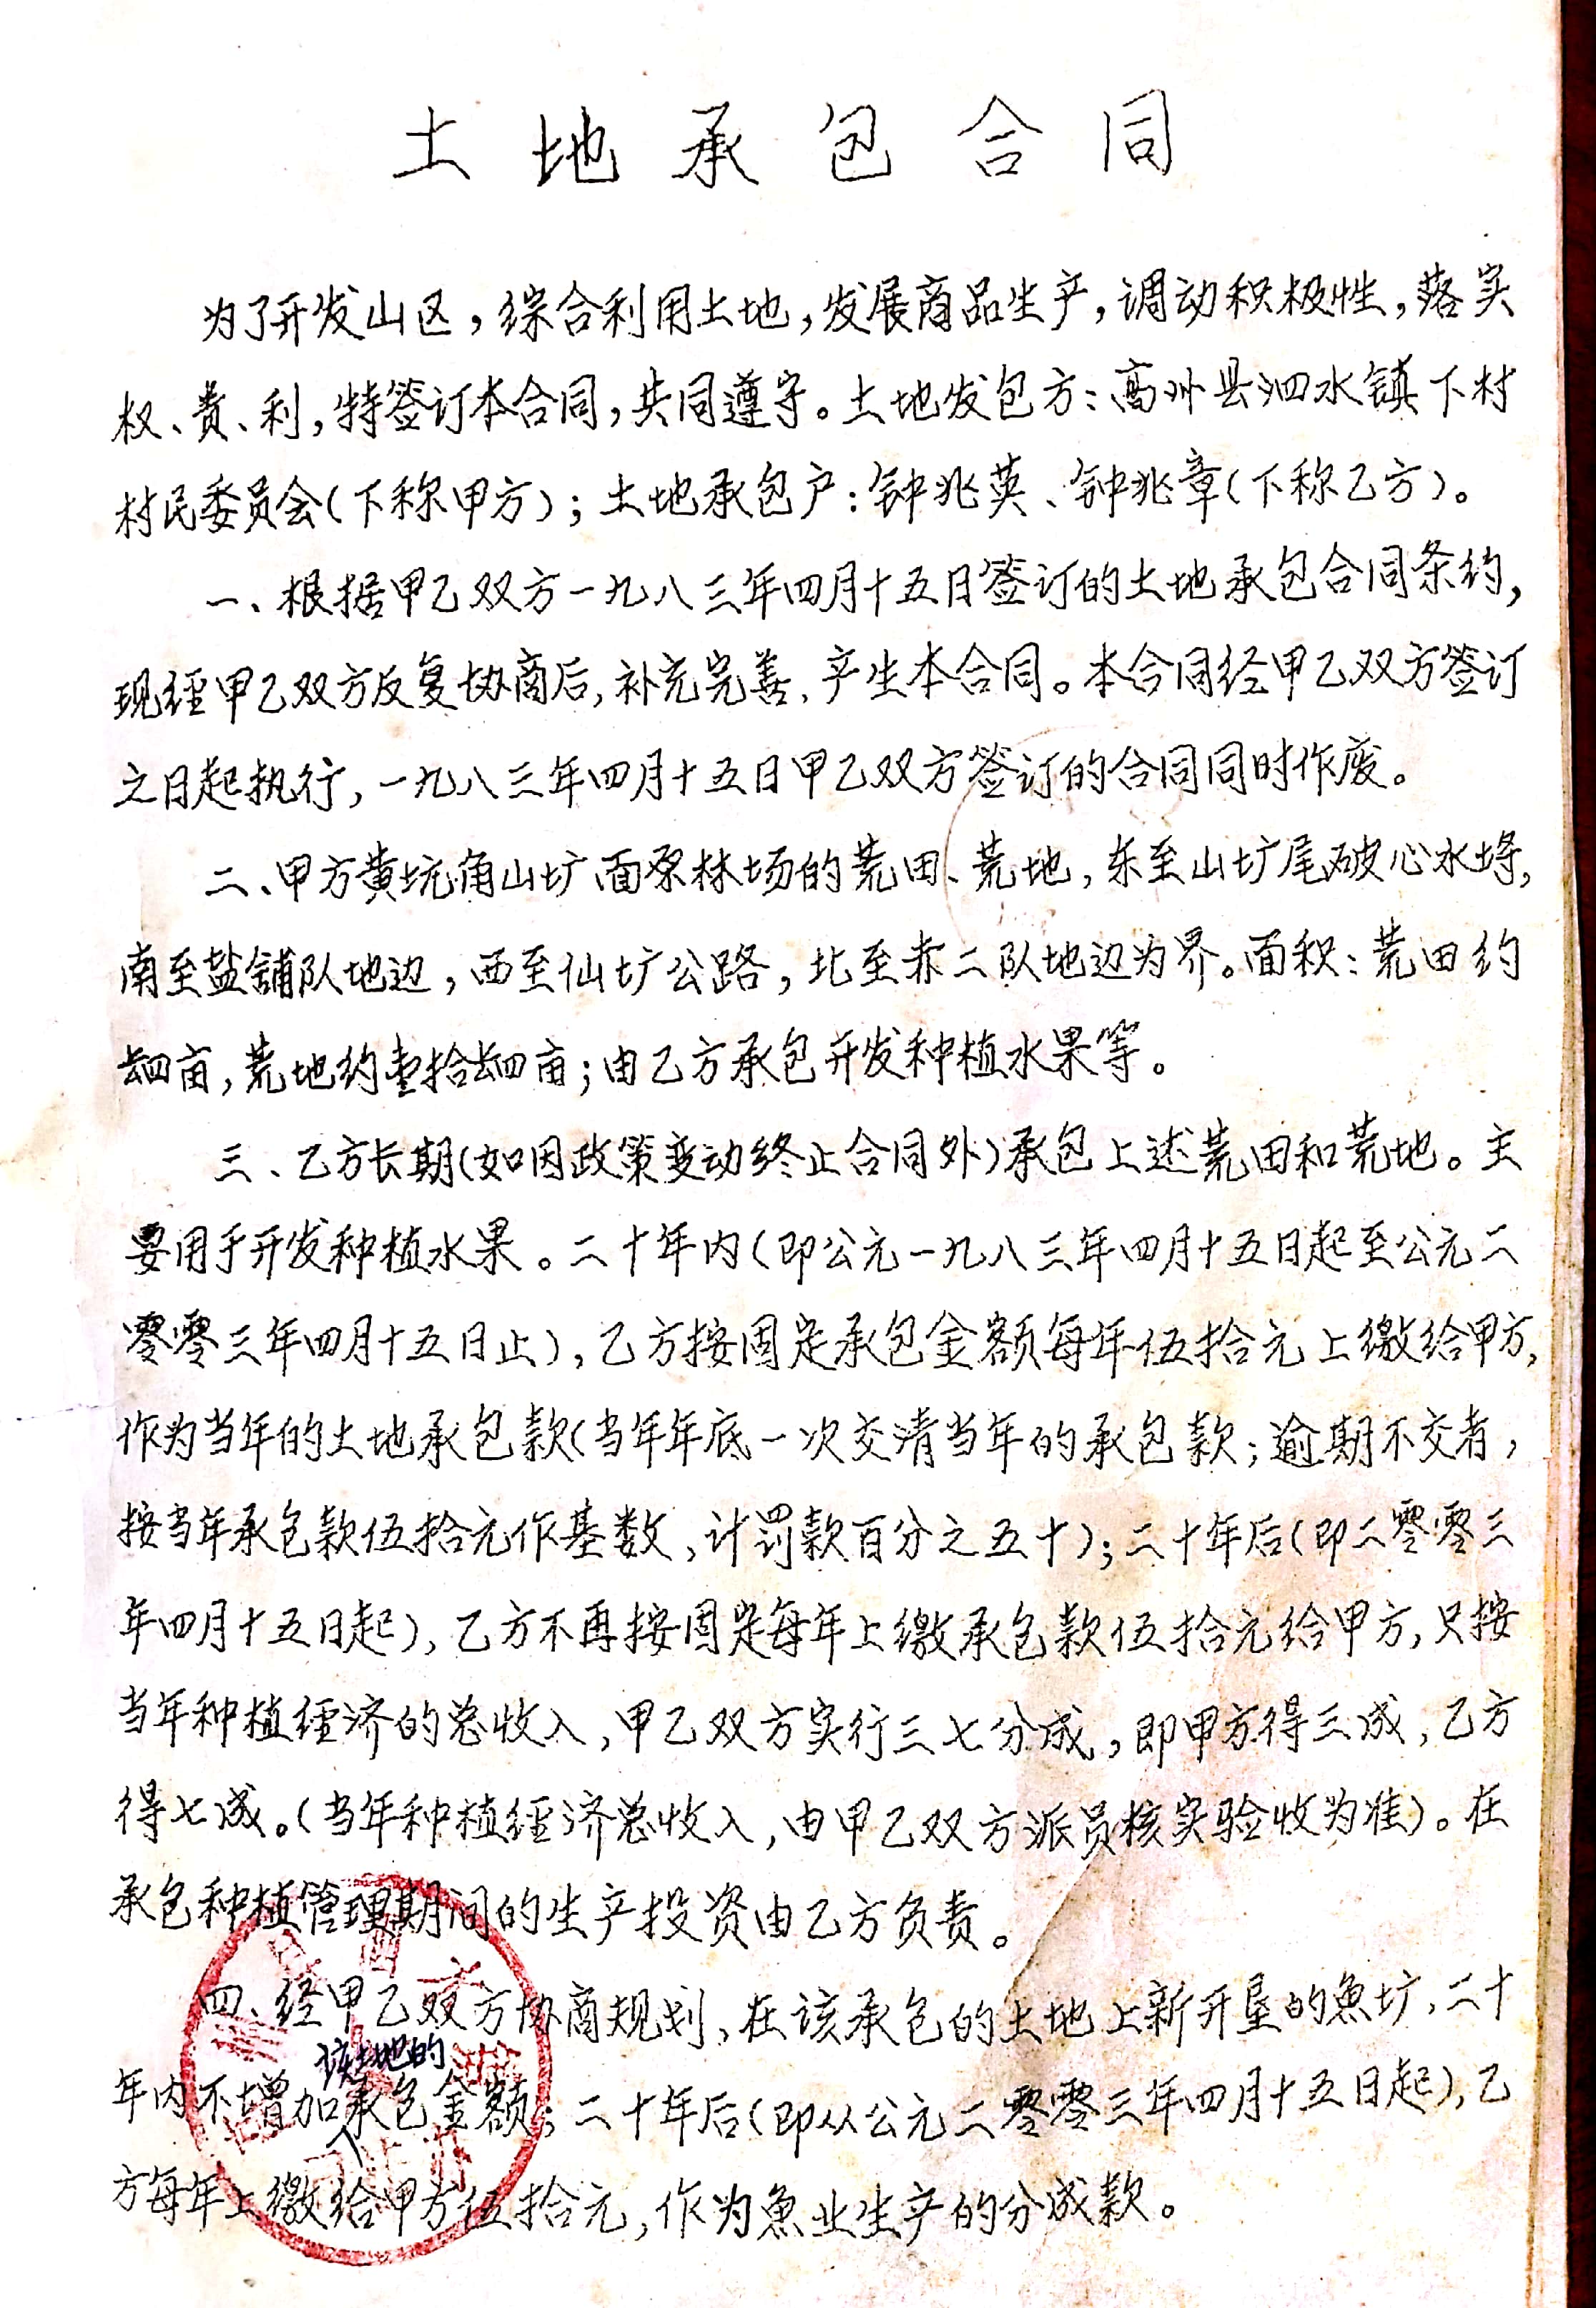 土地承包合同
为了开发山区，综合利用土地，发展商品生产，调动积极性，落实
权、责、利，特签订本合同，共同遵守。土地发包方：高州县泗水镇下村
村民委员会（下称甲方）；土地承包户：钟兆英、钟兆章（下称乙方）。
一、根据甲乙双方一九八三年四月十五日签订的土地承包合同条约，
现经甲乙双方反复协商后，补充完善，产生本合同。本合同经甲乙双方签订
之日起执行，一九八三年四月十五日甲乙双方签订的合同同时作废。
二、甲方黄坑角山圹面原林场的荒田、荒地，东至山圹尾破心水埒，
南至盐铺队地边，西至仙圹公路，北至赤二队地边为界。面积：荒田约
肆亩，荒地约壹拾肆亩；由乙方承包开发种植水果等。
三、乙方长期（如因政策变动终止合同外）承包上述荒田和荒地。主
要用于开发种植水果。二十年内（即公元一九八三年四月十五日起至公元二
零零三年四月十五日止），乙方按固定承包金额每年伍拾元上缴给甲方，
作为当年的土地承包款（当年年底一次交清当年的承包款；逾期不交者，
按当年承包款伍拾元作基数，计罚款百分之五十）；二十年后（即二零零三
年四月十五日起），乙方不再按固定每年上缴承包款伍拾元给甲方，只按
当年种植经济的总收入，甲乙双方实行三七分成，即甲方得三成，乙方
得七成。（当年种植经济总收入，由甲乙双方派员核实验收为准）。在
承包种植管理期间的生产投资由乙方负责。
四、经甲乙双方协商规划，在该承包的土地上新开垦的魚圹，二十
该土地的
年内不增加承包金额；二十年后（即从公元二零零三年四月十五日起），乙
方每年上缴给甲方伍拾元，作为魚业生产的分成款。